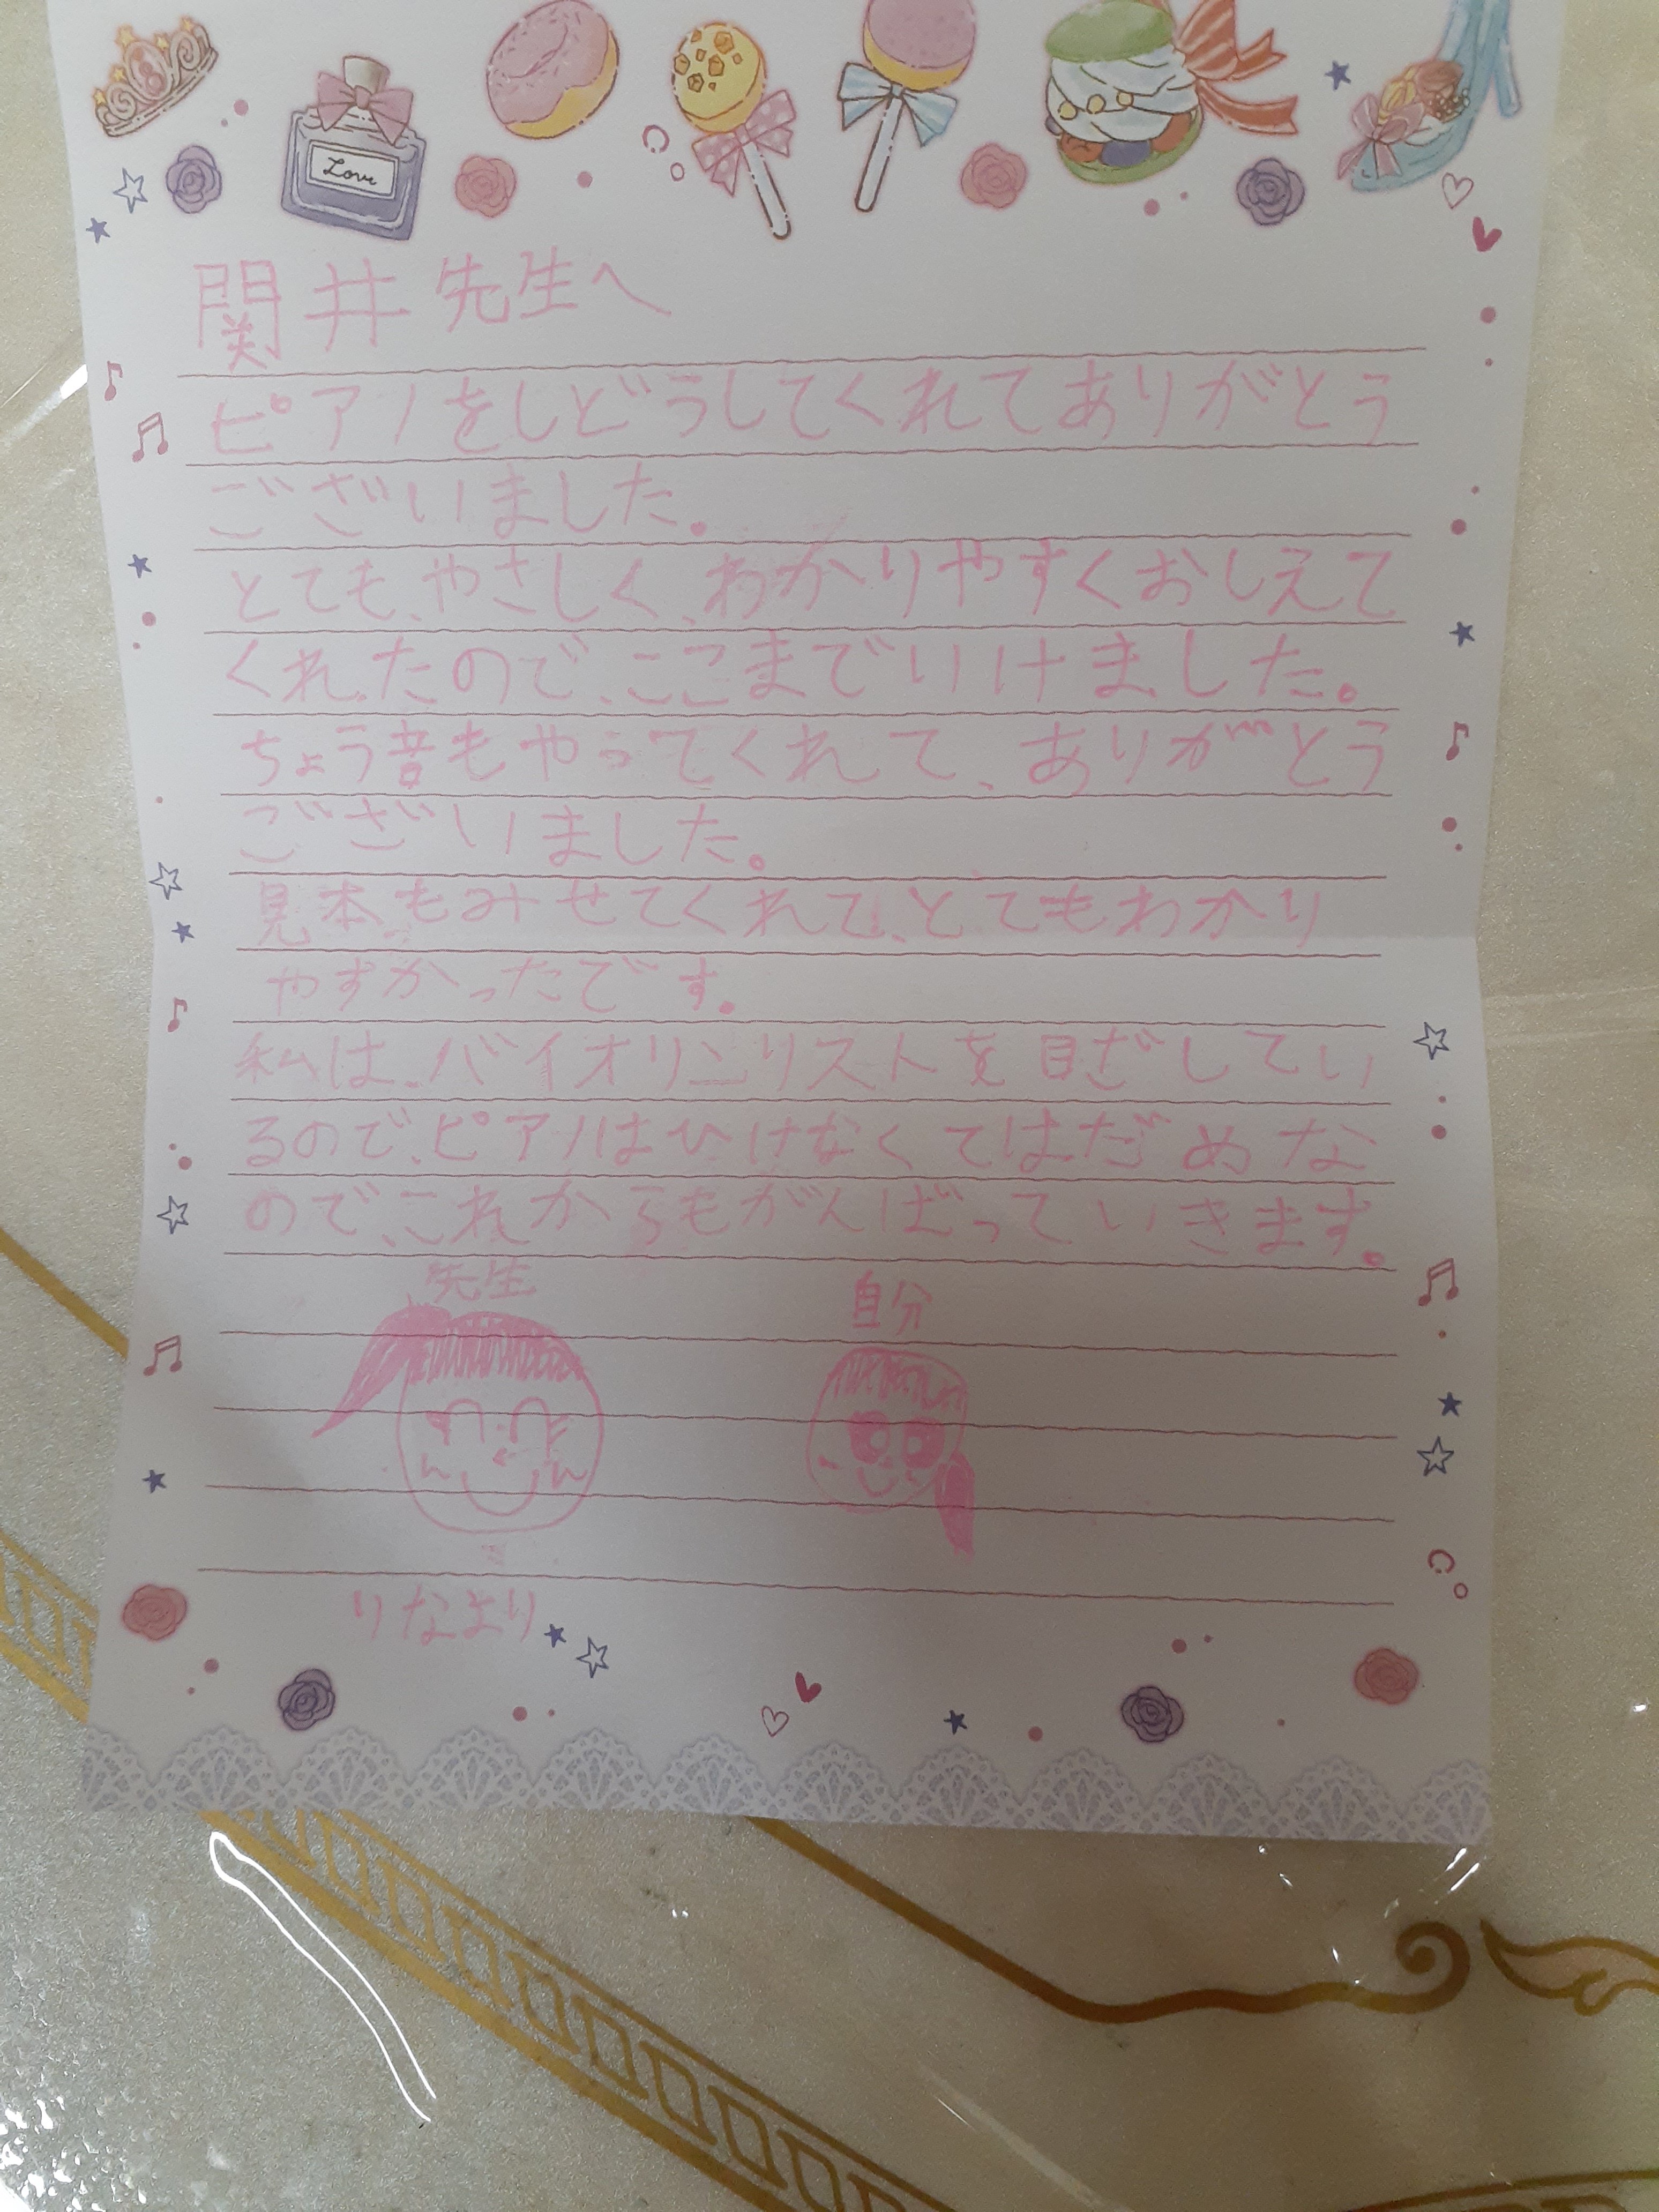 Love
関井先生へ
ピアノをしどうしてくれてありがとう
ございました。
とても、やさしく、わかりやすくおしえて
くれたので、ここまでいけました。
ちょう音もやってくれて、ありがとう
ございました。
見本もみせてくれて、とてもわかり
やすかったです。
私は、バイオリンリストを目ざしてい
るので、ピアノはひけなくてはだめな
ので、これからもがんばっていきます。
先生 自分
りなより